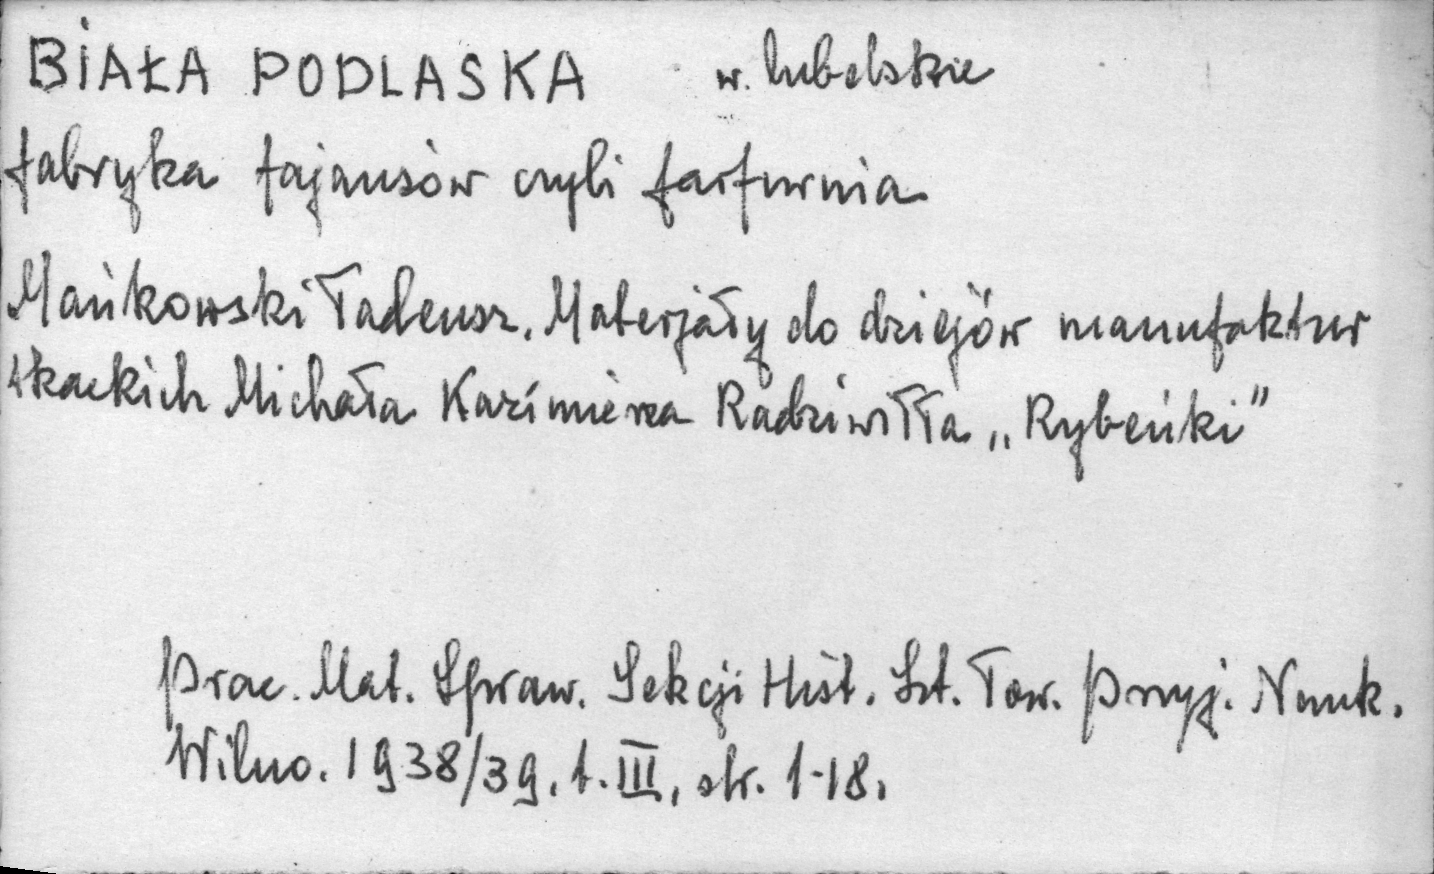 BIAŁA PODLASKA w. lubelskie
fabryka fajansów czyli farfurnia
Mańkowski Tadeusz. Materjały do dziejów manufaktur
tkackich Michała Kazimierza Radziwiłła „Rybeńki”
Prac. Mat. Spraw. Sekcji Hist. Szt. Tow. Przyj. Nauk.
Wilno. 1938/39, t. III, str. 1-18.